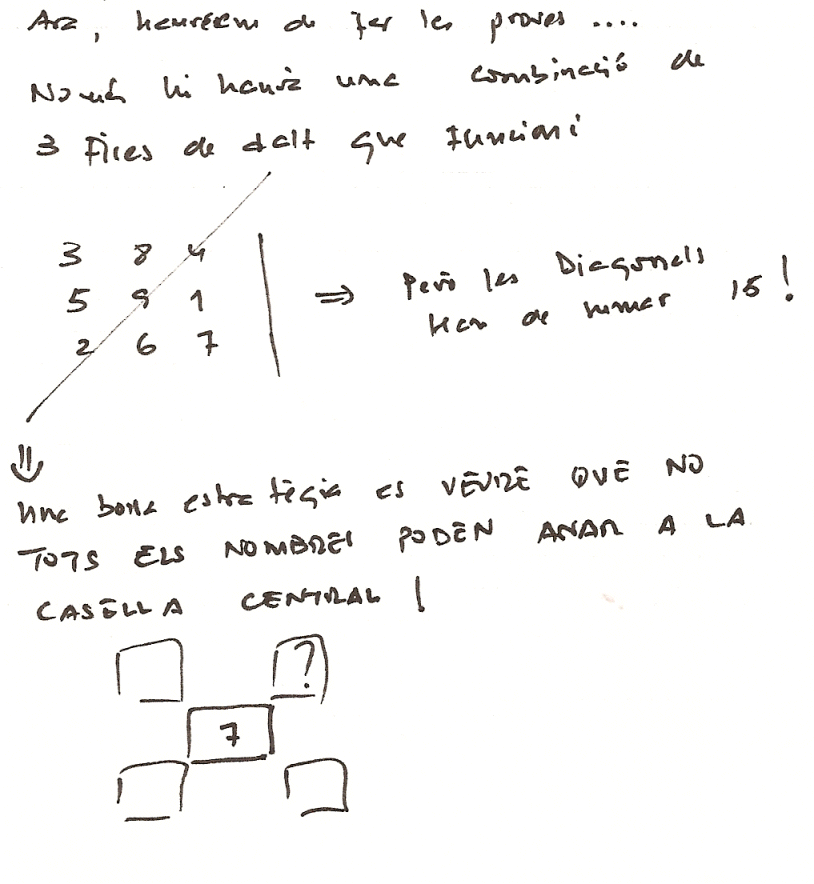 Ara, haurem de fer les proves ....
Només hi haurà una combinació de
3 files de dalt que funcioni
3 8 4
5 9 1
2 6 7
⇒ Però les Diagonals
han de sumar 15!
⇓
Una bona estratègia es VEURE QUE NO
TOTS ELS NOMBRES PODEN ANAR A LA
CASELLA CENTRAL!
?
7